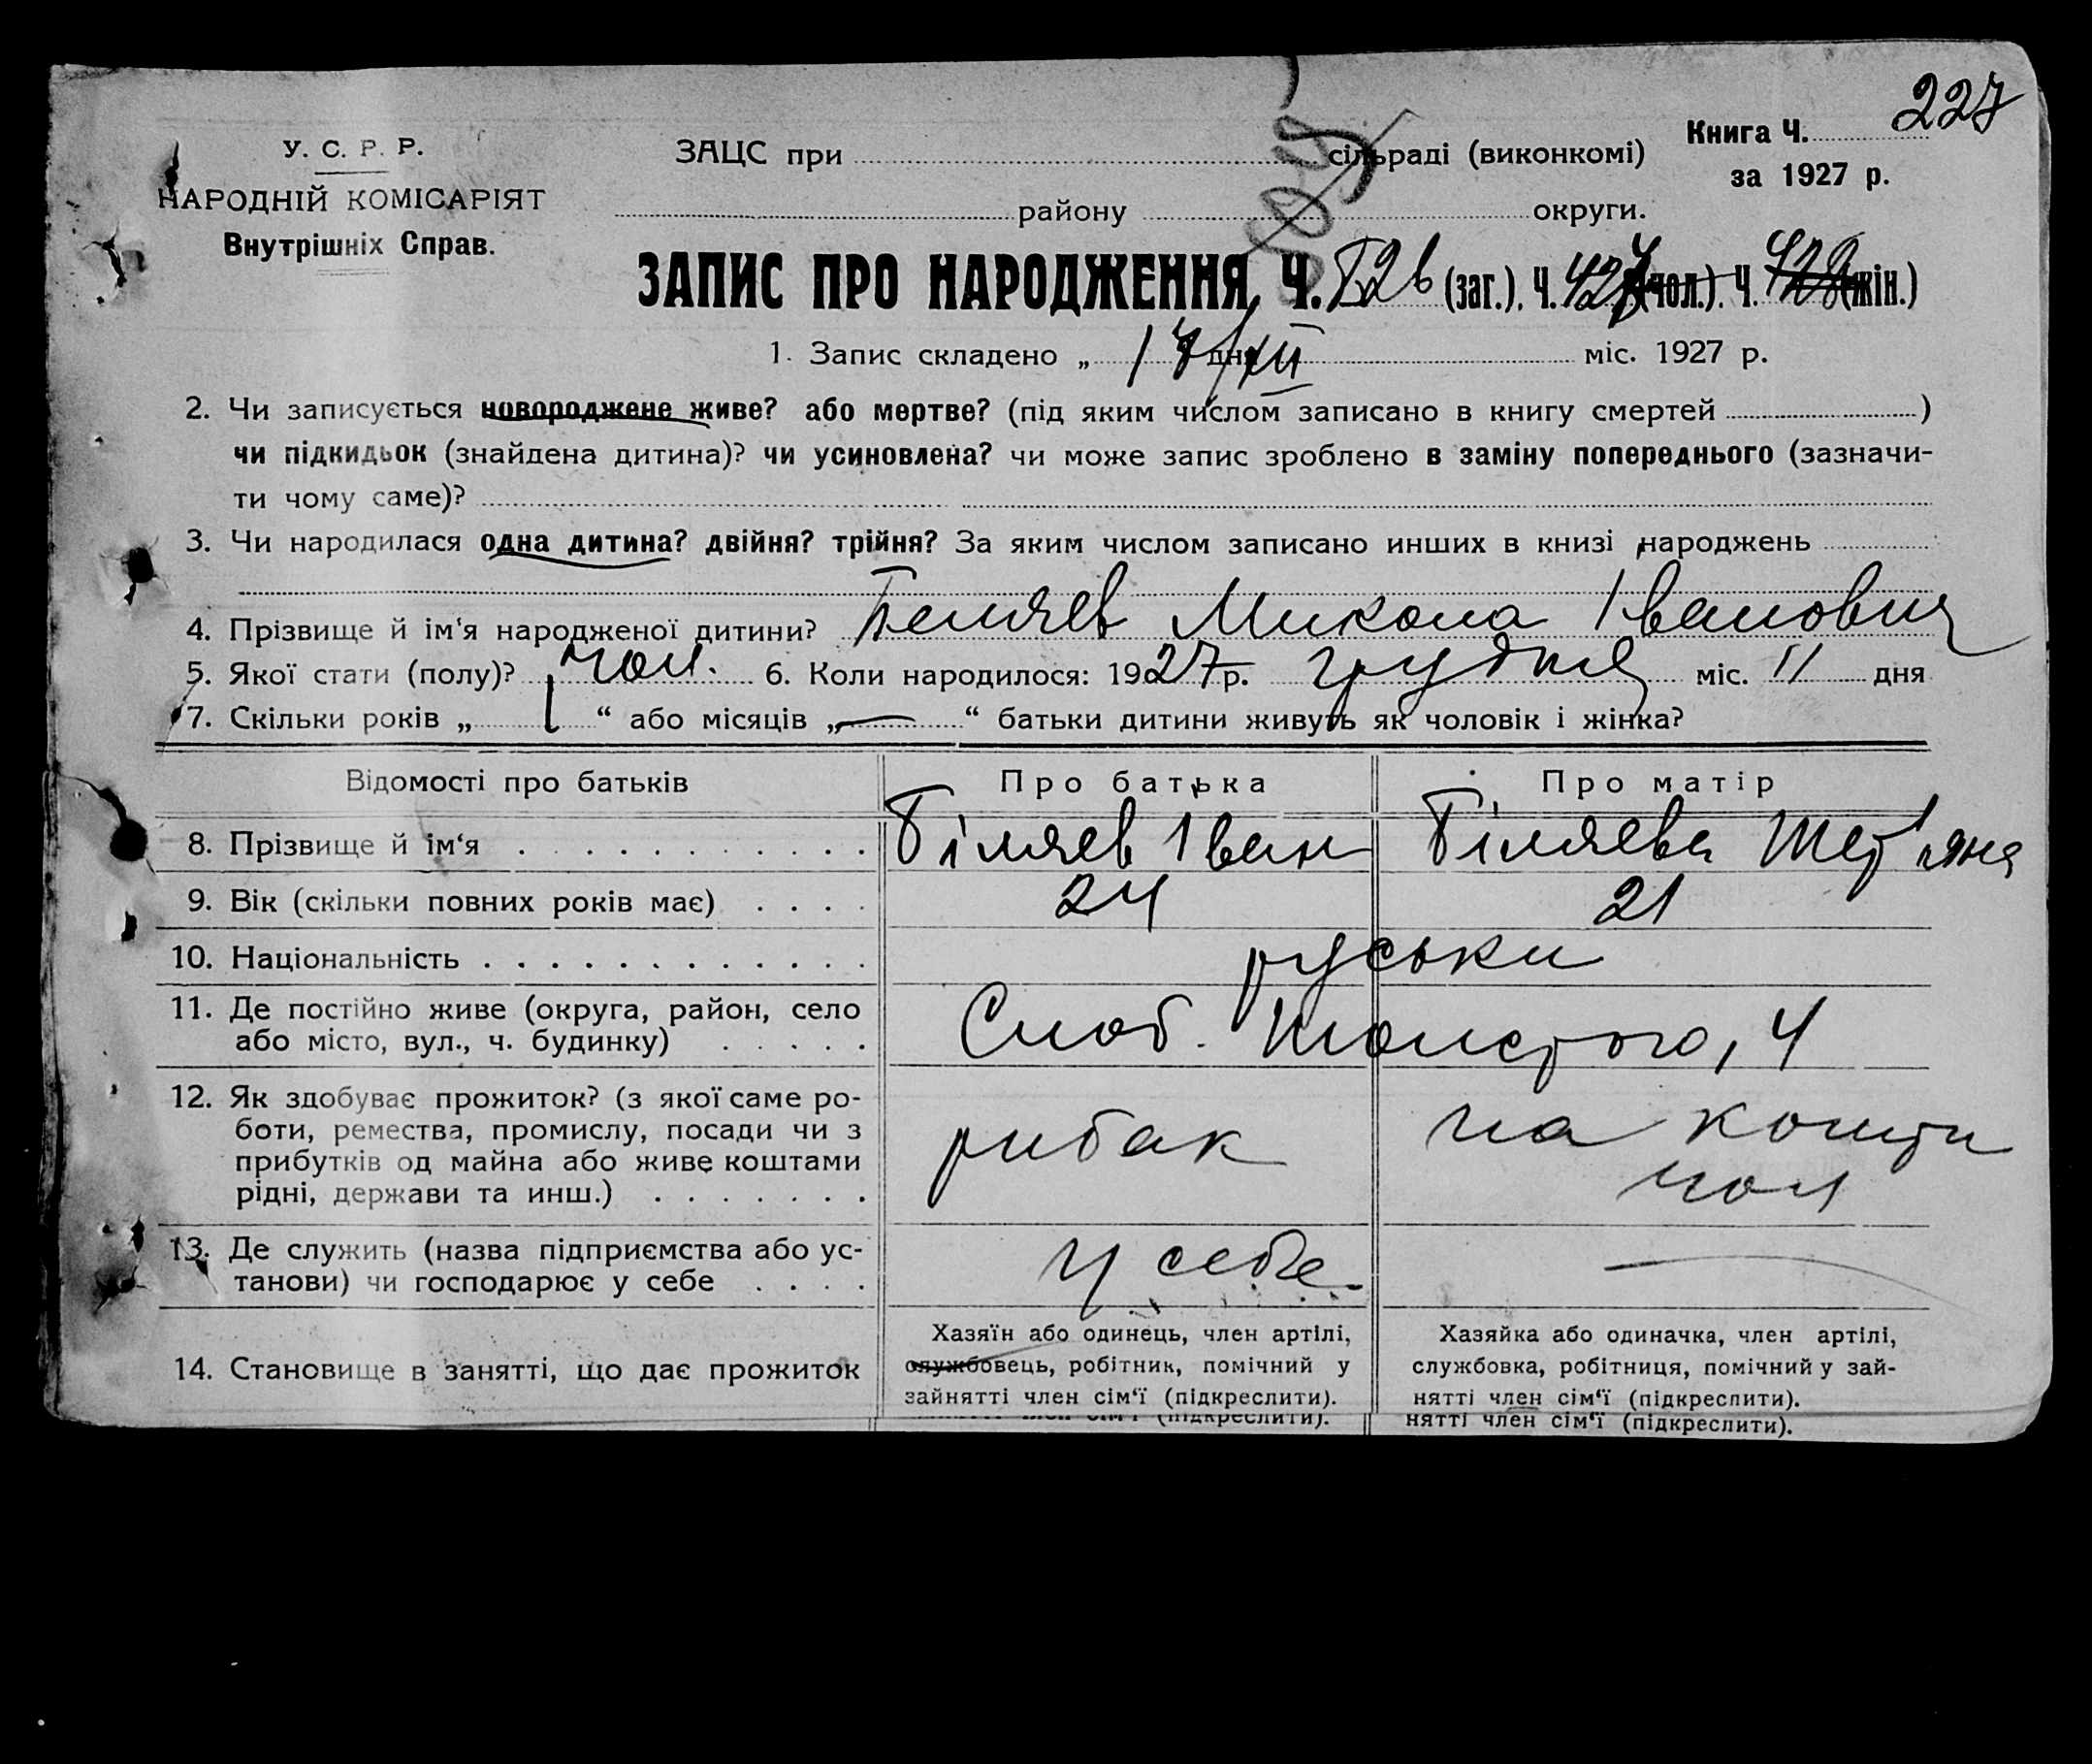 227
У. С. Р. Р.
НАРОДНІЙ КОМІСАРІЯТ
Внутрішніх Справ.
ЗАЦС при сільраді (виконкомі)
району округи.
Книга Ч.
за 1927 р.
ЗАПИС ПРО НАРОДЖЕННЯ, Ч. (заг.). Ч. 427 (чол.). Ч. (жін.)
1. Запис складено „ 17/XII дня міс. 1927 р.
2. Чи записується новороджене живе? або мертве? (під яким числом записано в книгу смертей )
чи підкидьок (знайдена дитина)? чи усиновлена? чи може запис зроблено в заміну попереднього (зазначи-
ти чому саме)?
3. Чи народилася одна дитина? двійня? трійня? За яким числом записано инших в книзі народжень
4. Прізвище й ім‘я народженої дитини? Беляев Микола Іванович
5. Якої стати (полу)? чол. 6. Коли народилося: 1927 р. грудня міс. 11 дня
7. Скільки років „ 1 “ або місяців „ — “ батьки дитини живуть як чоловік і жінка?
Відомості про батьків Про батька Про матір
8. Прізвище й ім‘я Біляев Іван Біляева Тет‘яна
9. Вік (скільки повних років має) 24 21
10. Національність руськи
11. Де постійно живе (округа, район, село
або місто, вул., ч. будинку) Слоб. Толстого, 4
12. Як здобуває прожиток? (з якої саме ро-
боти, ремества, промислу, посади чи з
прибутків од майна або живе коштами
рідні, держави та инш.) рибак на кошти
чол
13. Де служить (назва підприємства або ус-
танови) чи господарює у себе у себе —
14. Становище в занятті, що дає прожиток
Хазяїн або одинець, член артілі,
службовець, робітник, помічний у
зайнятті член сім‘ї (підкреслити).
Хазяйка або одиначка, член артілі,
службовка, робітниця, помічний у зай-
нятті член сім‘ї (підкреслити).
(підкреслити).
нятті член сім‘ї (підкреслити).